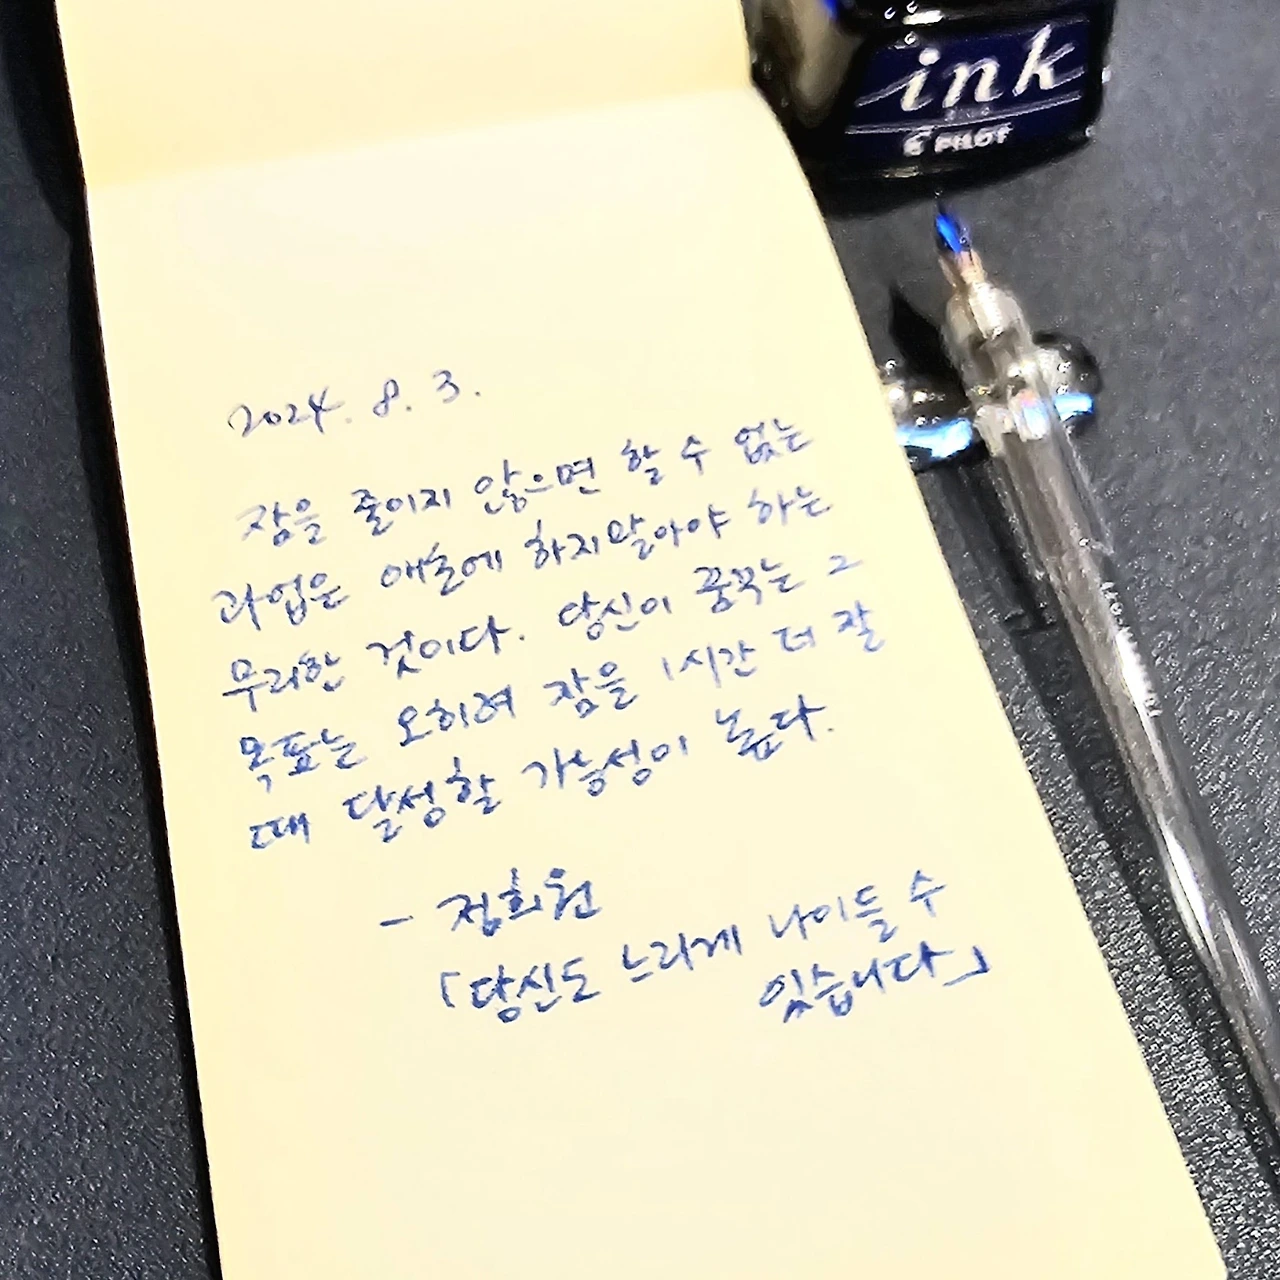 ink
PILOT
2024. 8. 3.
잠을 줄이지 않으면 할 수 없는
과업은 애초에 하지말아야 하는
무리한 것이다. 당신이 꿈꾸는 그
목표는 오히려 잠을 1시간 더 잘
때 달성할 가능성이 높다.
- 정희원
「당신도 느리게 나이들 수
있습니다」